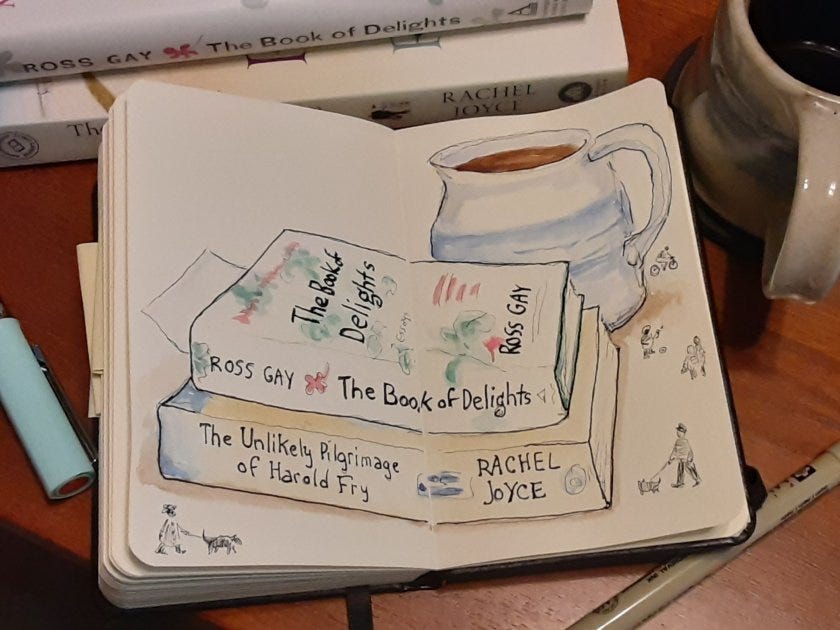 ROSS GAY The Book of Delights
Th
RACHEL
JOYCE
The Book of
Delights
Essays
ROSS GAY
ROSS GAY The Book of Delights
The Unlikely Pilgrimage
of Harold Fry
RACHEL
JOYCE